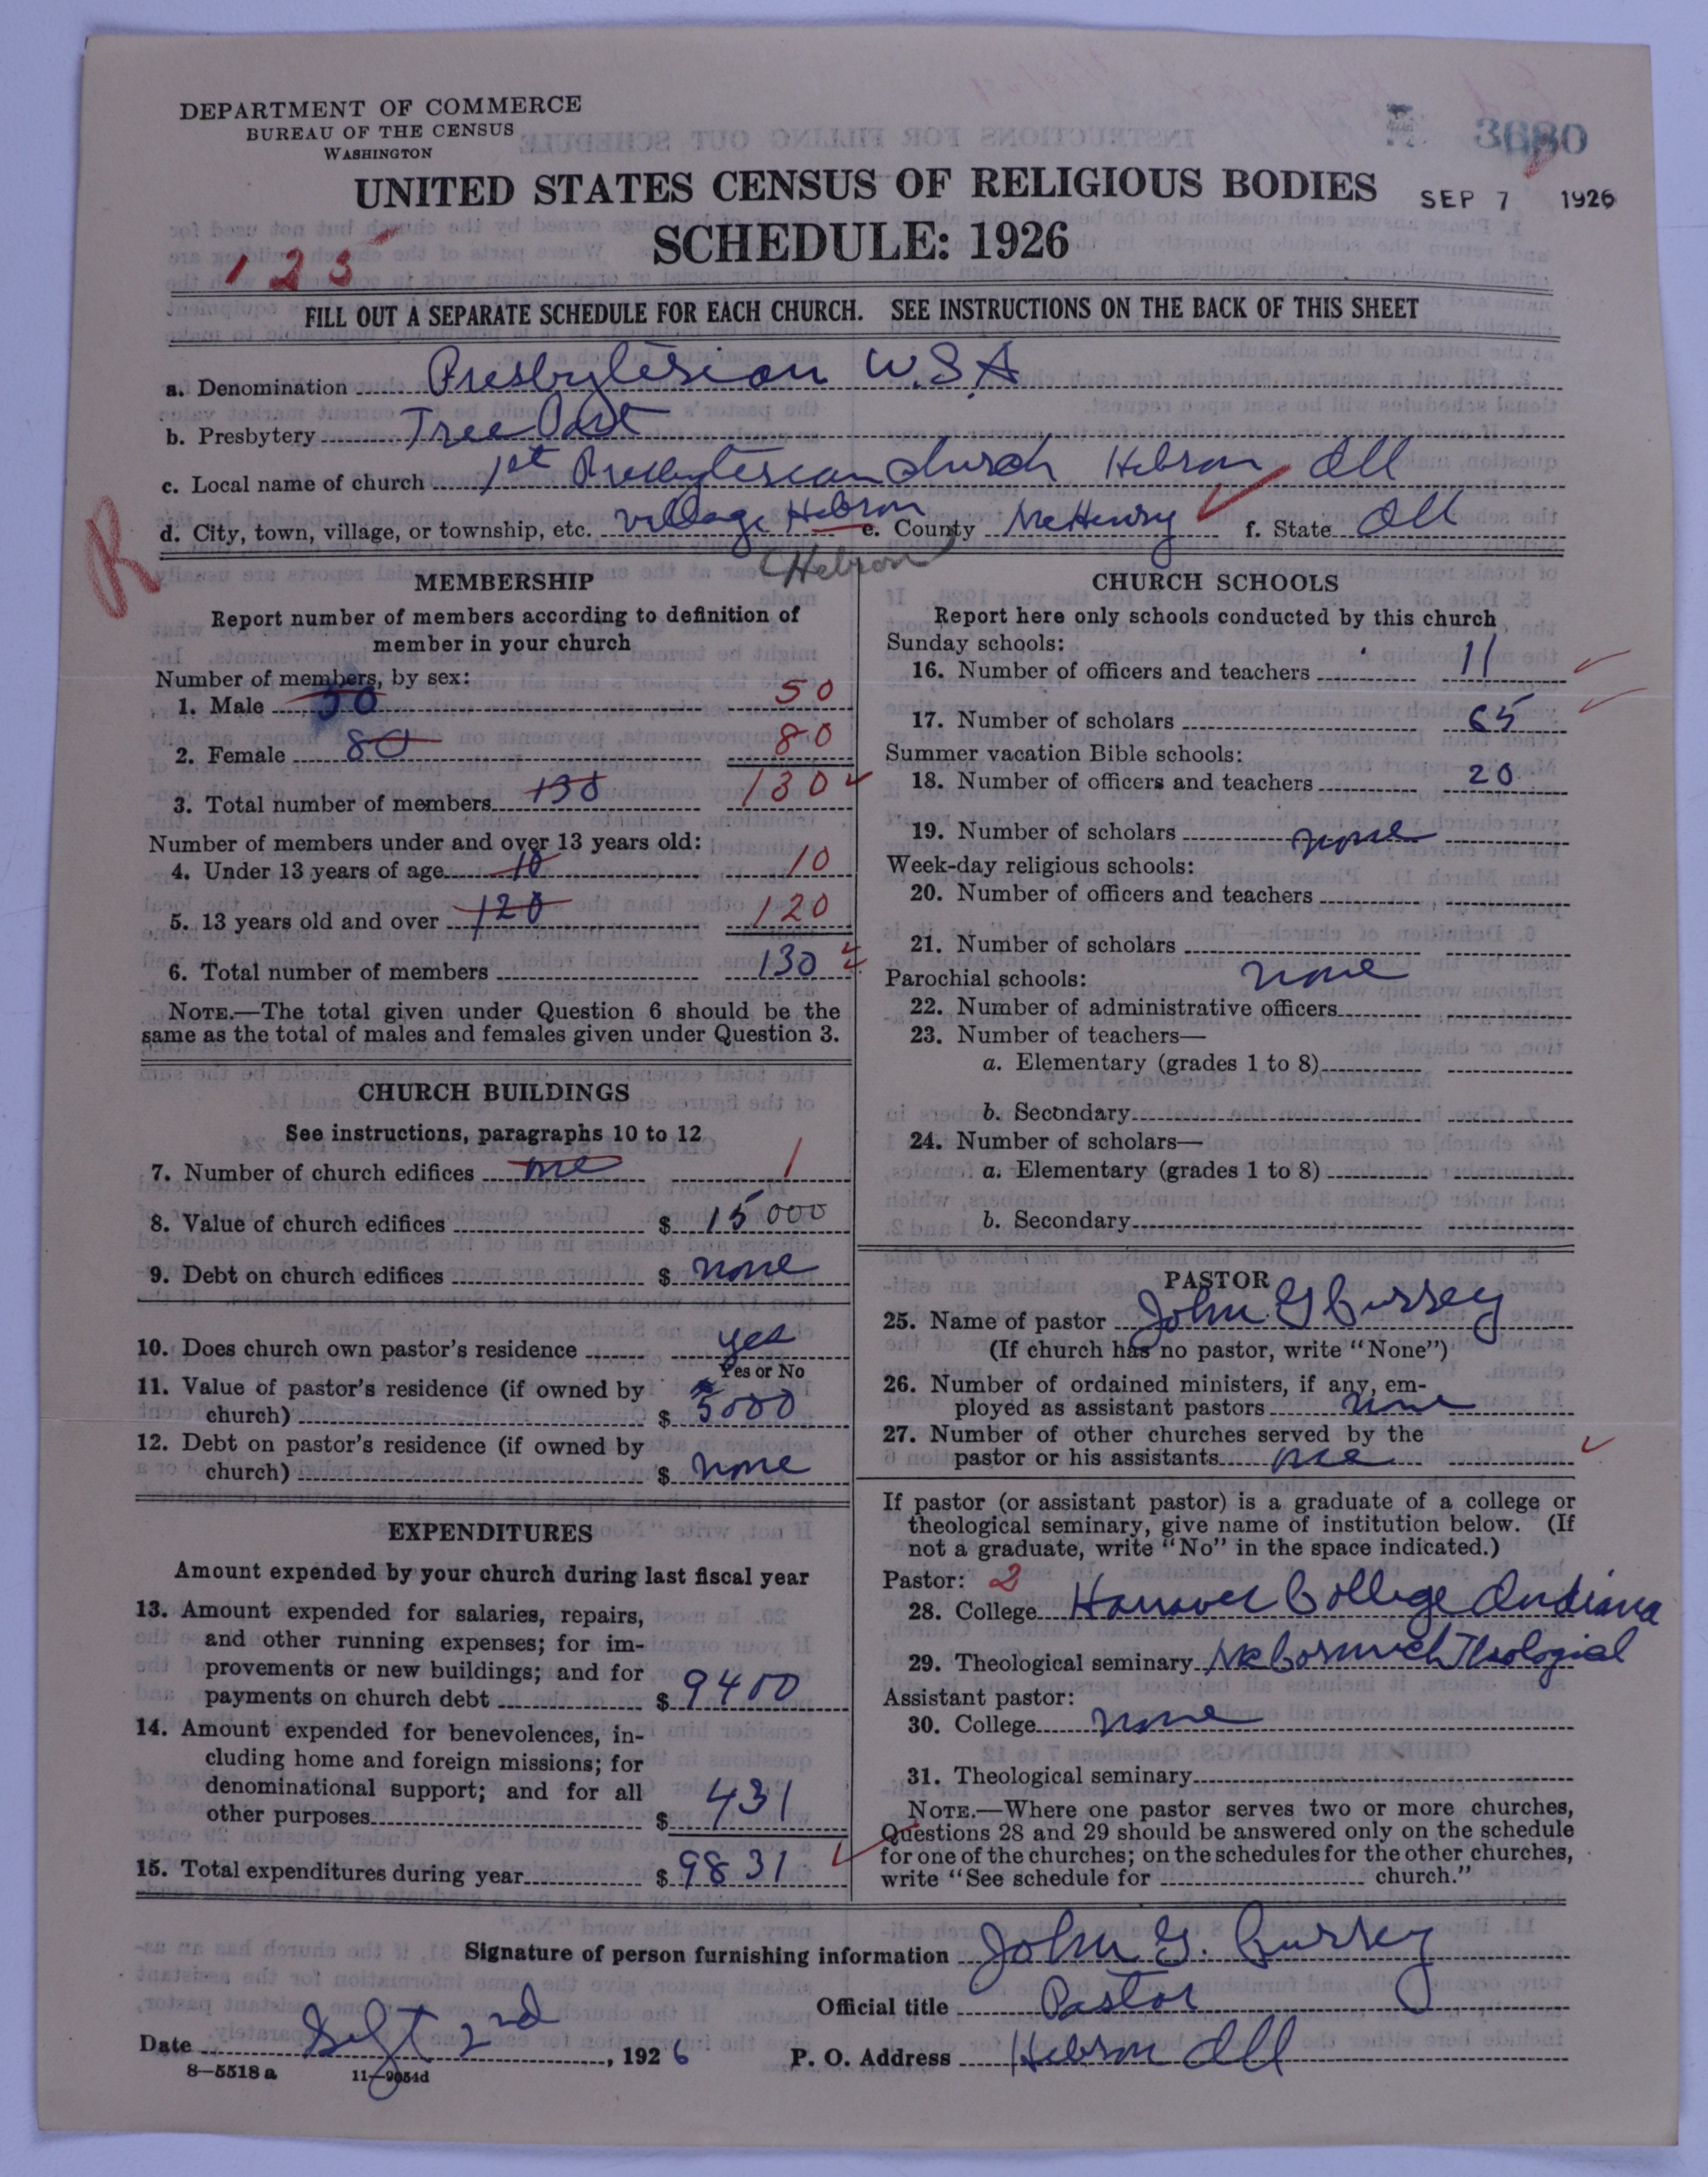 DEPARTMENT OF COMMERCE
BUREAU OF THE CENSUS
WASHINGTON
3680
UNITED STATES CENSUS OF RELIGIOUS BODIES
SEP 7 1926
SCHEDULE: 1926
125
FILL OUT A SEPARATE SCHEDULE FOR EACH CHURCH. SEE INSTRUCTIONS ON THE BACK OF THIS SHEET
a. Denomination Presbyterian U.S.A
b. Presbytery Free Port
c. Local name of church 1st Presbyterian Church Hebron Ill
d. City, town, village, or township, etc. village Hebron e. County McHenry f. State Ill
(Hebron
R
MEMBERSHIP
Report number of members according to definition of
member in your church
Number of members, by sex:
1. Male 50 50
2. Female 80 80
3. Total number of members 130 130
Number of members under and over 13 years old:
4. Under 13 years of age 10 10
5. 13 years old and over 120 120
6. Total number of members 130
NOTE.—The total given under Question 6 should be the
same as the total of males and females given under Question 3.
CHURCH BUILDINGS
See instructions, paragraphs 10 to 12
7. Number of church edifices one 1
8. Value of church edifices $ 15000
9. Debt on church edifices $ none
10. Does church own pastor's residence yes
Yes or No
11. Value of pastor's residence (if owned by
church) $ 5000
12. Debt on pastor's residence (if owned by
church) $ none
EXPENDITURES
Amount expended by your church during last fiscal year
13. Amount expended for salaries, repairs,
and other running expenses; for im-
provements or new buildings; and for
payments on church debt $ 9400
14. Amount expended for benevolences, in-
cluding home and foreign missions; for
denominational support; and for all
other purposes $ 431
15. Total expenditures during year $ 9831
CHURCH SCHOOLS
Report here only schools conducted by this church
Sunday schools:
16. Number of officers and teachers 11
17. Number of scholars 65
Summer vacation Bible schools:
18. Number of officers and teachers 20
19. Number of scholars none
Week-day religious schools:
20. Number of officers and teachers
21. Number of scholars
Parochial schools: none
22. Number of administrative officers
23. Number of teachers—
a. Elementary (grades 1 to 8)
b. Secondary
24. Number of scholars—
a. Elementary (grades 1 to 8)
b. Secondary
PASTOR
25. Name of pastor John G Cursey
(If church has no pastor, write "None")
26. Number of ordained ministers, if any, em-
ployed as assistant pastors none
27. Number of other churches served by the
pastor or his assistants
If pastor (or assistant pastor) is a graduate of a college or
theological seminary, give name of institution below. (If
not a graduate, write "No" in the space indicated.)
Pastor: 2
28. College Hanover College Indiana
29. Theological seminary McCormick Theological
Assistant pastor:
30. College none
31. Theological seminary
NOTE.—Where one pastor serves two or more churches,
Questions 28 and 29 should be answered only on the schedule
for one of the churches; on the schedules for the other churches,
write "See schedule for church."
Signature of person furnishing information John G. Cursey
Official title Pastor
Date Sept 2nd, 1926
P. O. Address Hebron Ill
8—5518 a 11—9054d